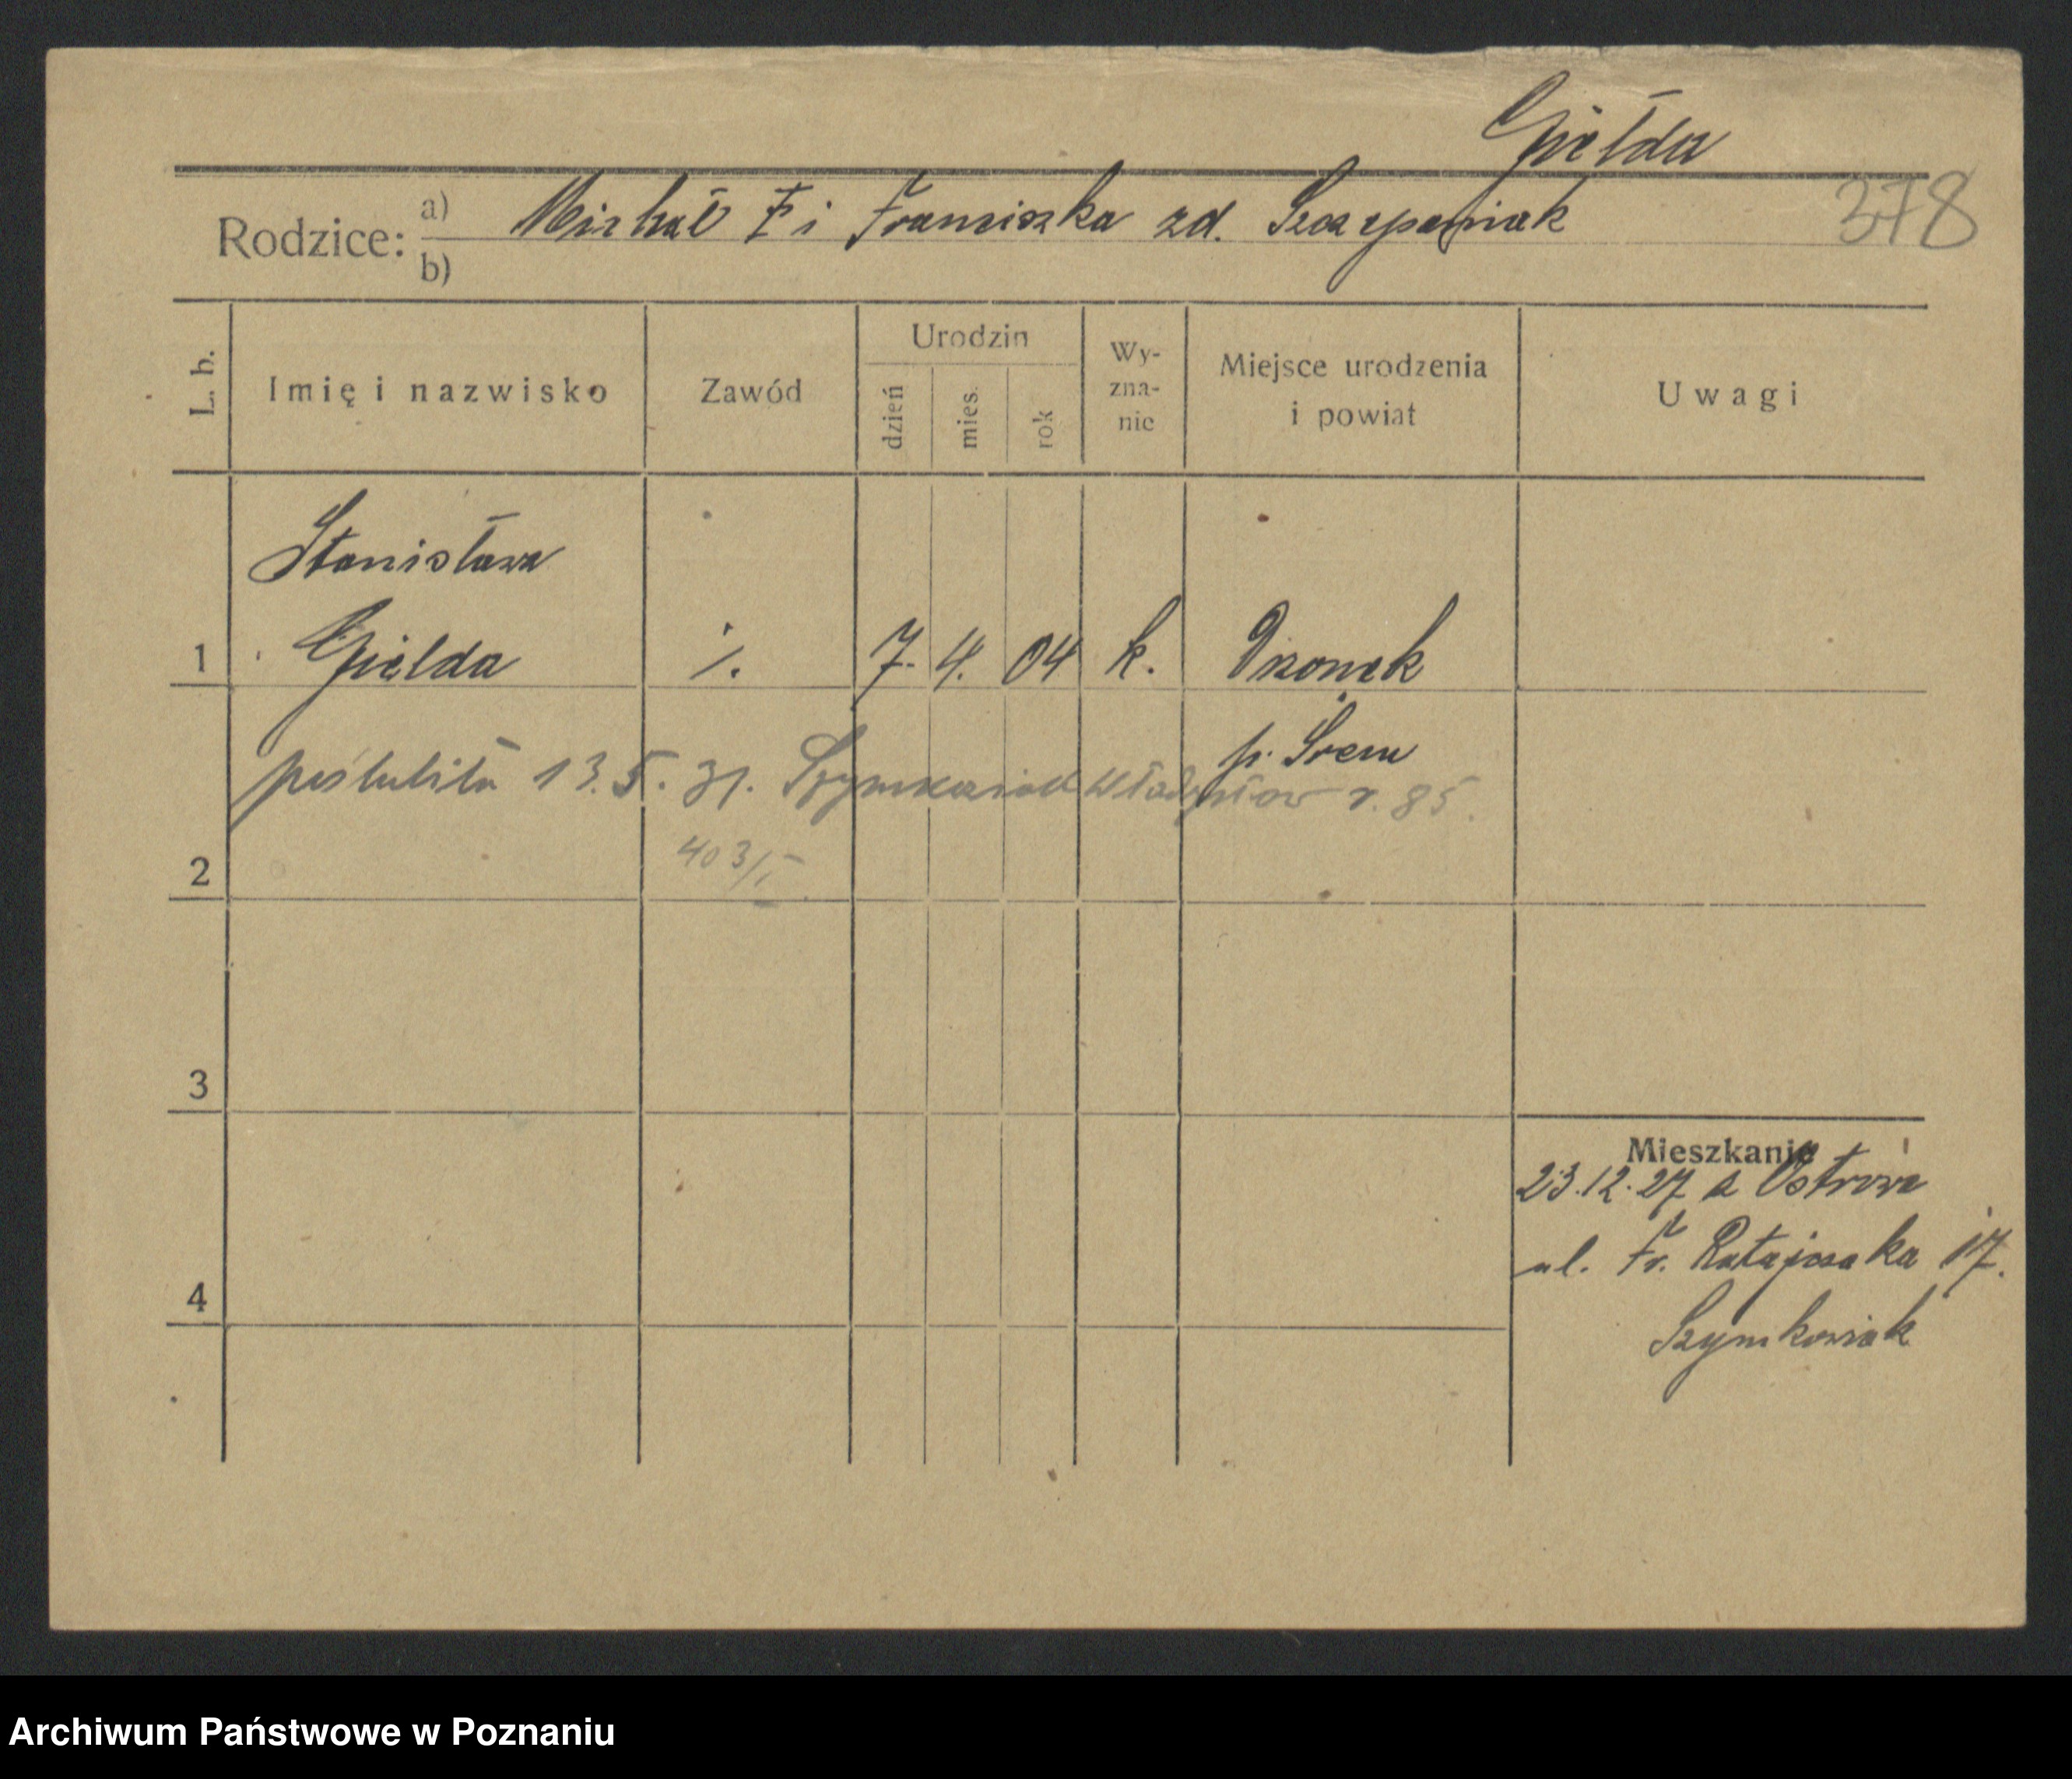 Giełda
Rodzice: a) Michał † i Franciszka zd. Szczepaniak 378
b)
L. b. Imię i nazwisko Zawód Urodzin dzień mies. rok Wy-zna-nie Miejsce urodzenia i powiat Uwagi
Stanisława
1 Giełda 7. 4. 04 k. Dronek
p. Śrem
poślubiła 13.5.31. Szymkowiak Władysław r. 85.
2 403/I
3
Mieszkanie
23.12.27 z Ostrowa
ul. Fr. Ratajczaka 17.
4
Szymkowiak
Archiwum Państwowe w Poznaniu